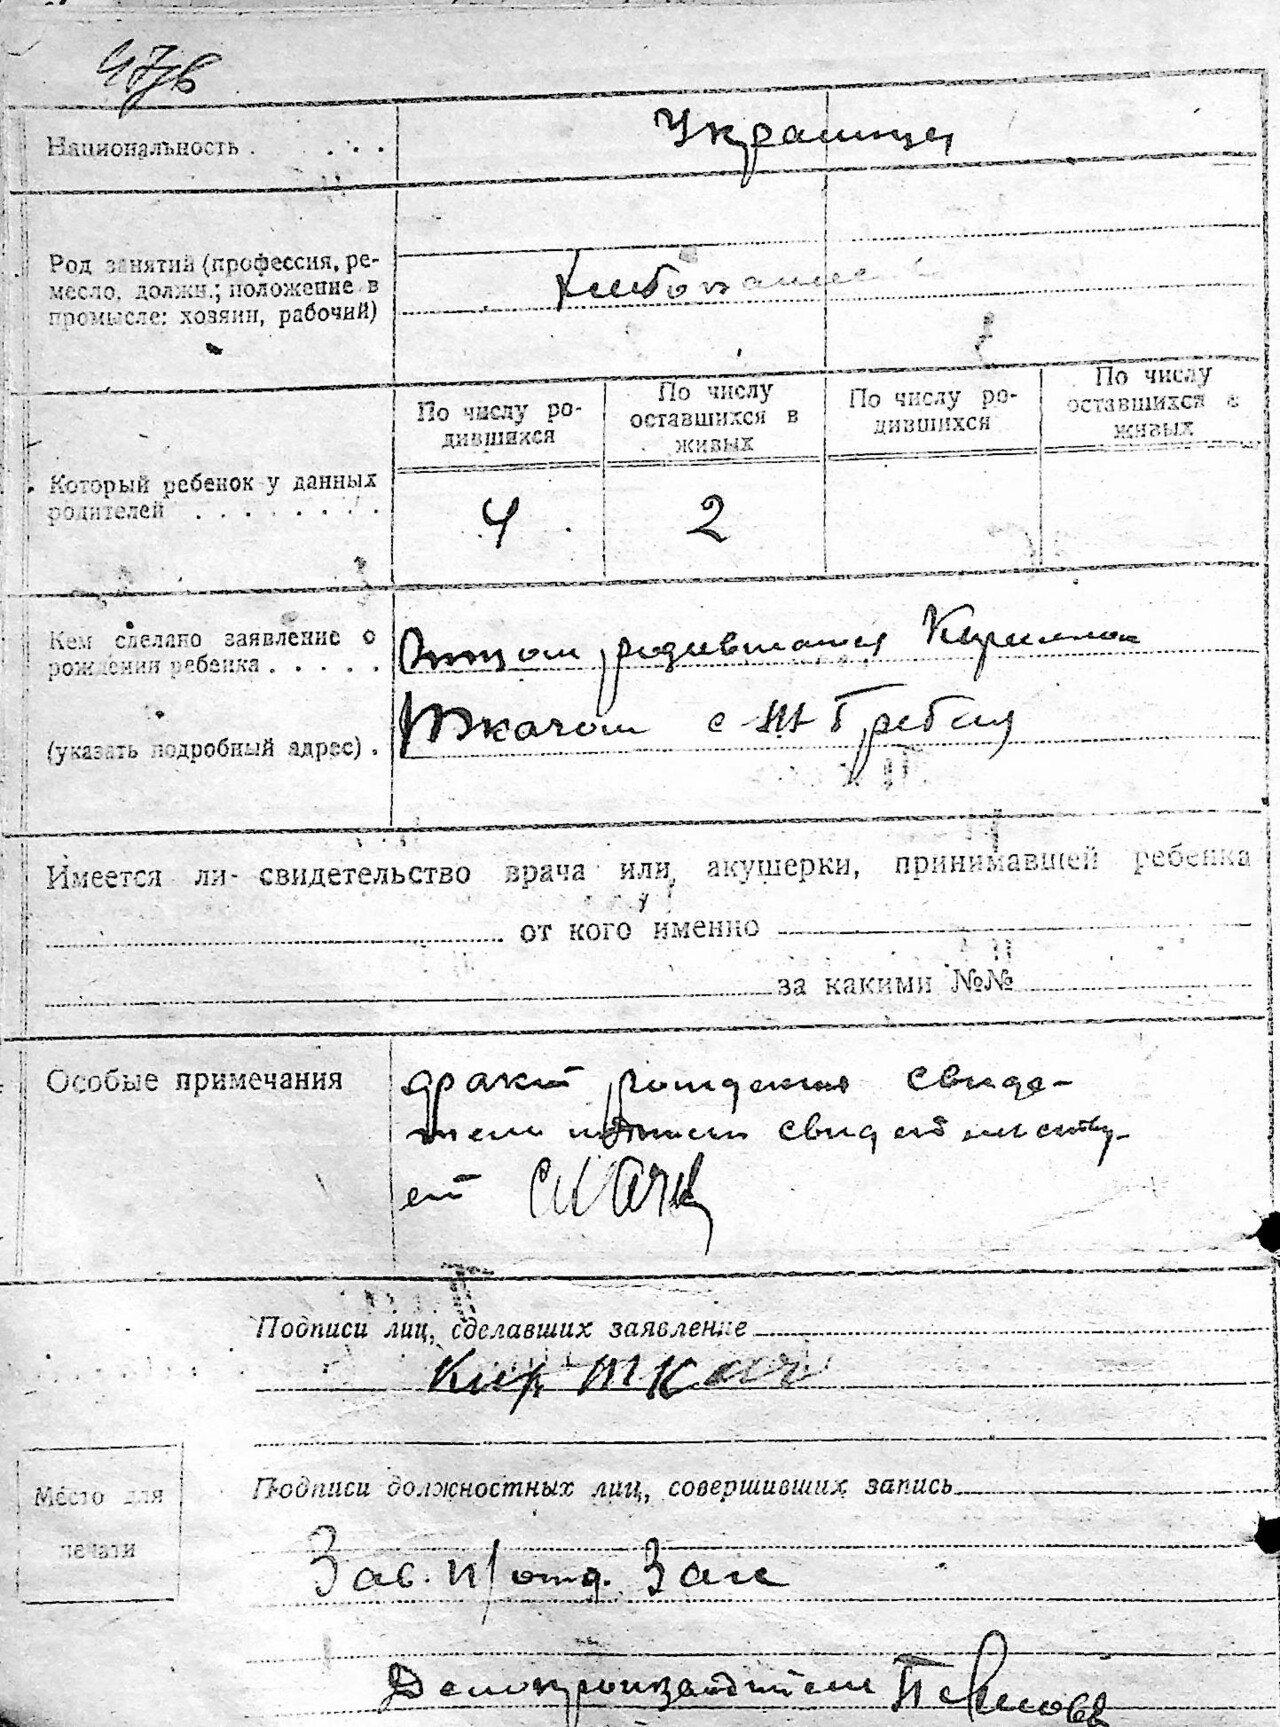 Украинцы
Национальность . . . .
Род занятий (профессия, ре-
месло, должн.; положение в
промысле: хозяин, рабочий)
По числу ро-
дившихся
По числу
оставшихся в
живых
По числу ро-
дившихся
По числу
оставшихся в
живых
Который ребенок у данных
родителей . . . . . . . .
4
2
Кем сделано заявление о
рождении ребенка . . . . .
(указать подробный адрес) .
Отцом родившагося
Ткачом с
Имеется ли свидетельство врача или акушерки, принимавшей ребенка
от кого именно
за какими №№
Особые примечания
факт рождения свиде-
тели свидетельству-
ет
Подписи лиц, сделавших заявление
Кир Ткач
Место для
печати
Подписи должностных лиц, совершивших запись
Зав. п/отд. Загс
Делопроизводитель